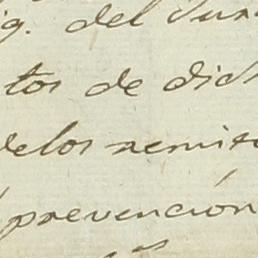 ig. del Jun
tos de dich
delos remit
prevención